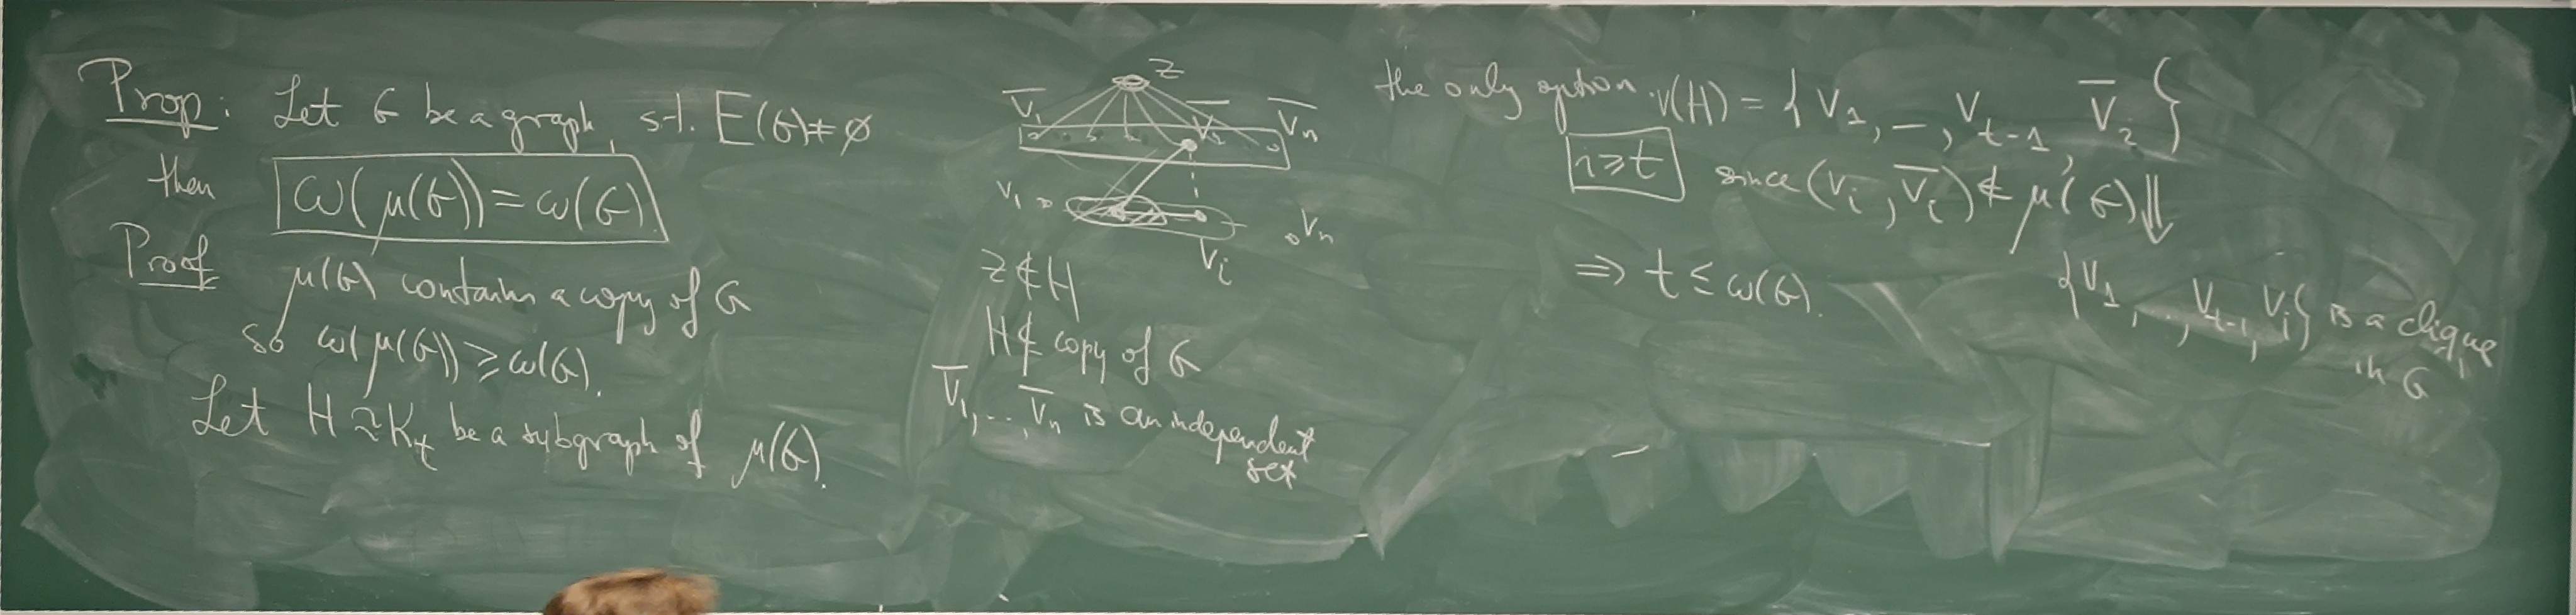 Prop: Let G be a graph, s.t. E(G)≠∅
then ω(μ(G))=ω(G)
Proof μ(G) contains a copy of G
so ω(μ(G))≥ω(G).
Let H≅K_t be a subgraph of μ(G).
z
V̄_1 V̄_i V̄_n
V_1 V_i V_n
z∉H
H⊄ copy of G
V̄_1,...,V̄_n is an independent
set
the only option. V(H)={V_1,–,V_{t-1}, V̄_i}
i≥t since (V_i, V̄_i)∉μ(G) ⇓
⇒ t≤ω(G). {V_1,..,V_{t-1},V_i} is a clique
in G